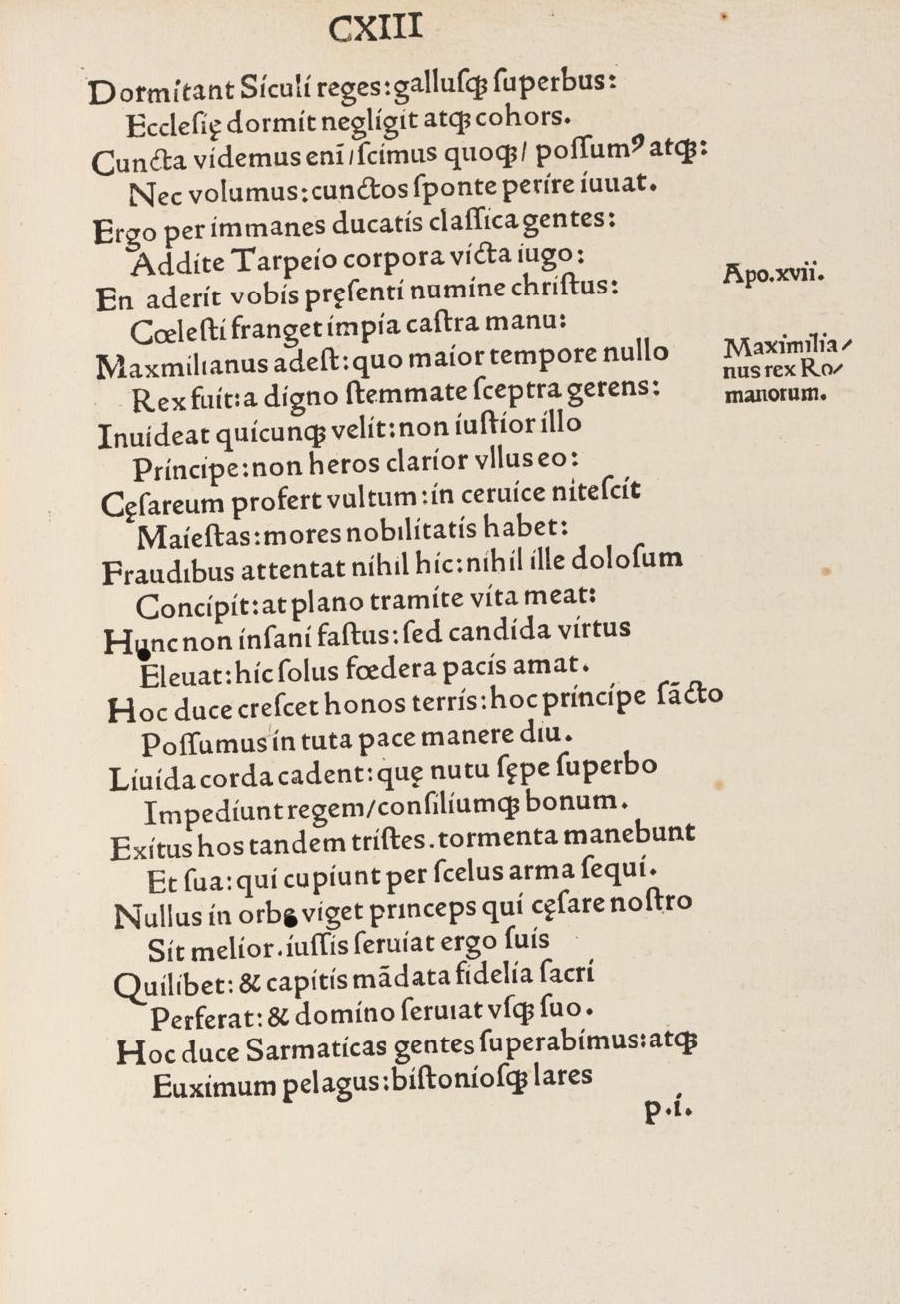 CXIII
Dormitant Siculi reges:galluſqꝫ ſuperbus:
Eccleſię dormit negligit atqꝫ cohors.
Cuncta videmus enī/ſcimus quoqꝫ/ poſſumꝰ atqꝫ:
Nec volumus:cunctos ſponte perire iuuat.
Ergo per immanes ducatis claſſica gentes:
Addite Tarpeio corpora victa iugo:
En aderit vobis pręſenti numine chriſtus:
Apo.xvii.
Cœleſti franget impia caſtra manu:
Maxmilianus adeſt:quo maior tempore nullo
Maximilia/
nus rex Ro/
manorum.
Rex fuit:a digno ſtemmate ſceptra gerens:
Inuideat quicunqꝫ velit:non iuſtior illo
Principe:non heros clarior vllus eo:
Cęſareum profert vultum:in ceruice niteſcit
Maieſtas:mores nobilitatis habet:
Fraudibus attentat nihil hic:nihil ille doloſum
Concipit:at plano tramite vita meat:
Hunc non inſani faſtus:ſed candida virtus
Eleuat:hic ſolus fœdera pacis amat.
Hoc duce creſcet honos terris:hoc principe ſācto
Poſſumus in tuta pace manere diu.
Liuida corda cadent:quę nutu ſępe ſuperbo
Impediunt regem/conſiliumqꝫ bonum.
Exitus hos tandem triſtes.tormenta manebunt
Et ſua:qui cupiunt per ſcelus arma ſequi.
Nullus in orbe viget princeps qui cęſare noſtro
Sit melior.iuſſis ſeruiat ergo ſuis
Quilibet:& capitis mādata fidelia ſacri
Perferat:& domino ſeruiat vſqꝫ ſuo.
Hoc duce Sarmaticas gentes ſuperabimus:atqꝫ
Euximum pelagus:biſtonioſqꝫ lares
p.i.